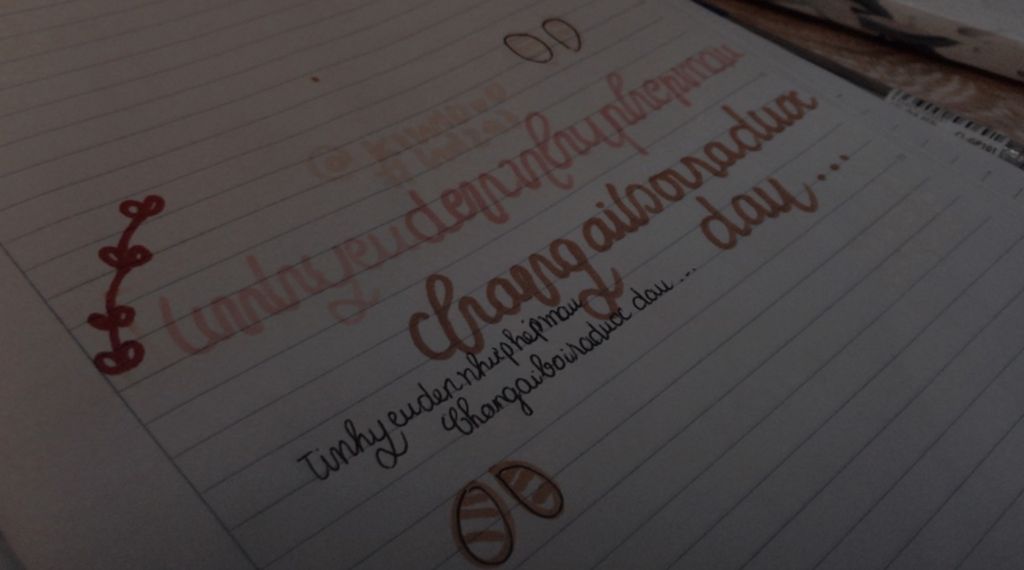 Tinhyeudennhuphepmau
Changaiboiraduoc
dau...
Tinhyeudennhuphepmau
Changaiboiraduoc dau...